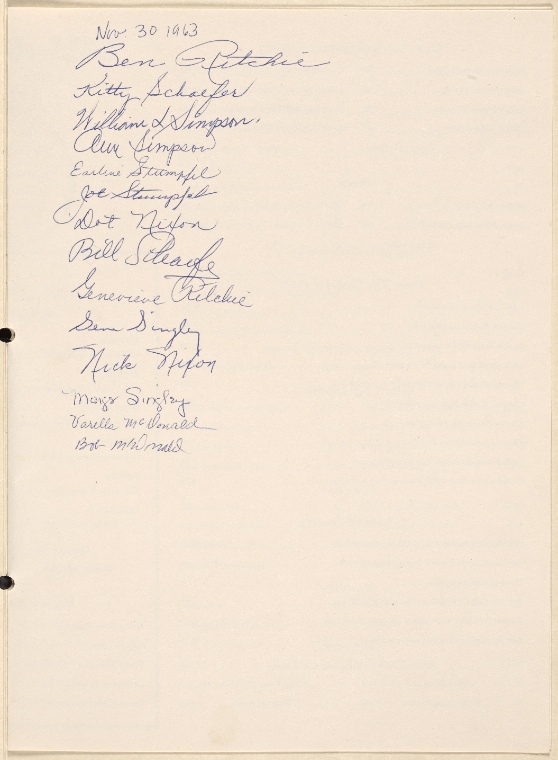 Nov 30 1963
Ben Ritchie
Kitty Schaefer
William L Simpson.
Ann Simpson
Earline Stumpfel
Joe Stumpfel
Dot Nixon
Bill Schaefer
Genevieve Ritchie
Gene Singley
Nick Nixon
Singley
Varella McDonald
Bob McDonald